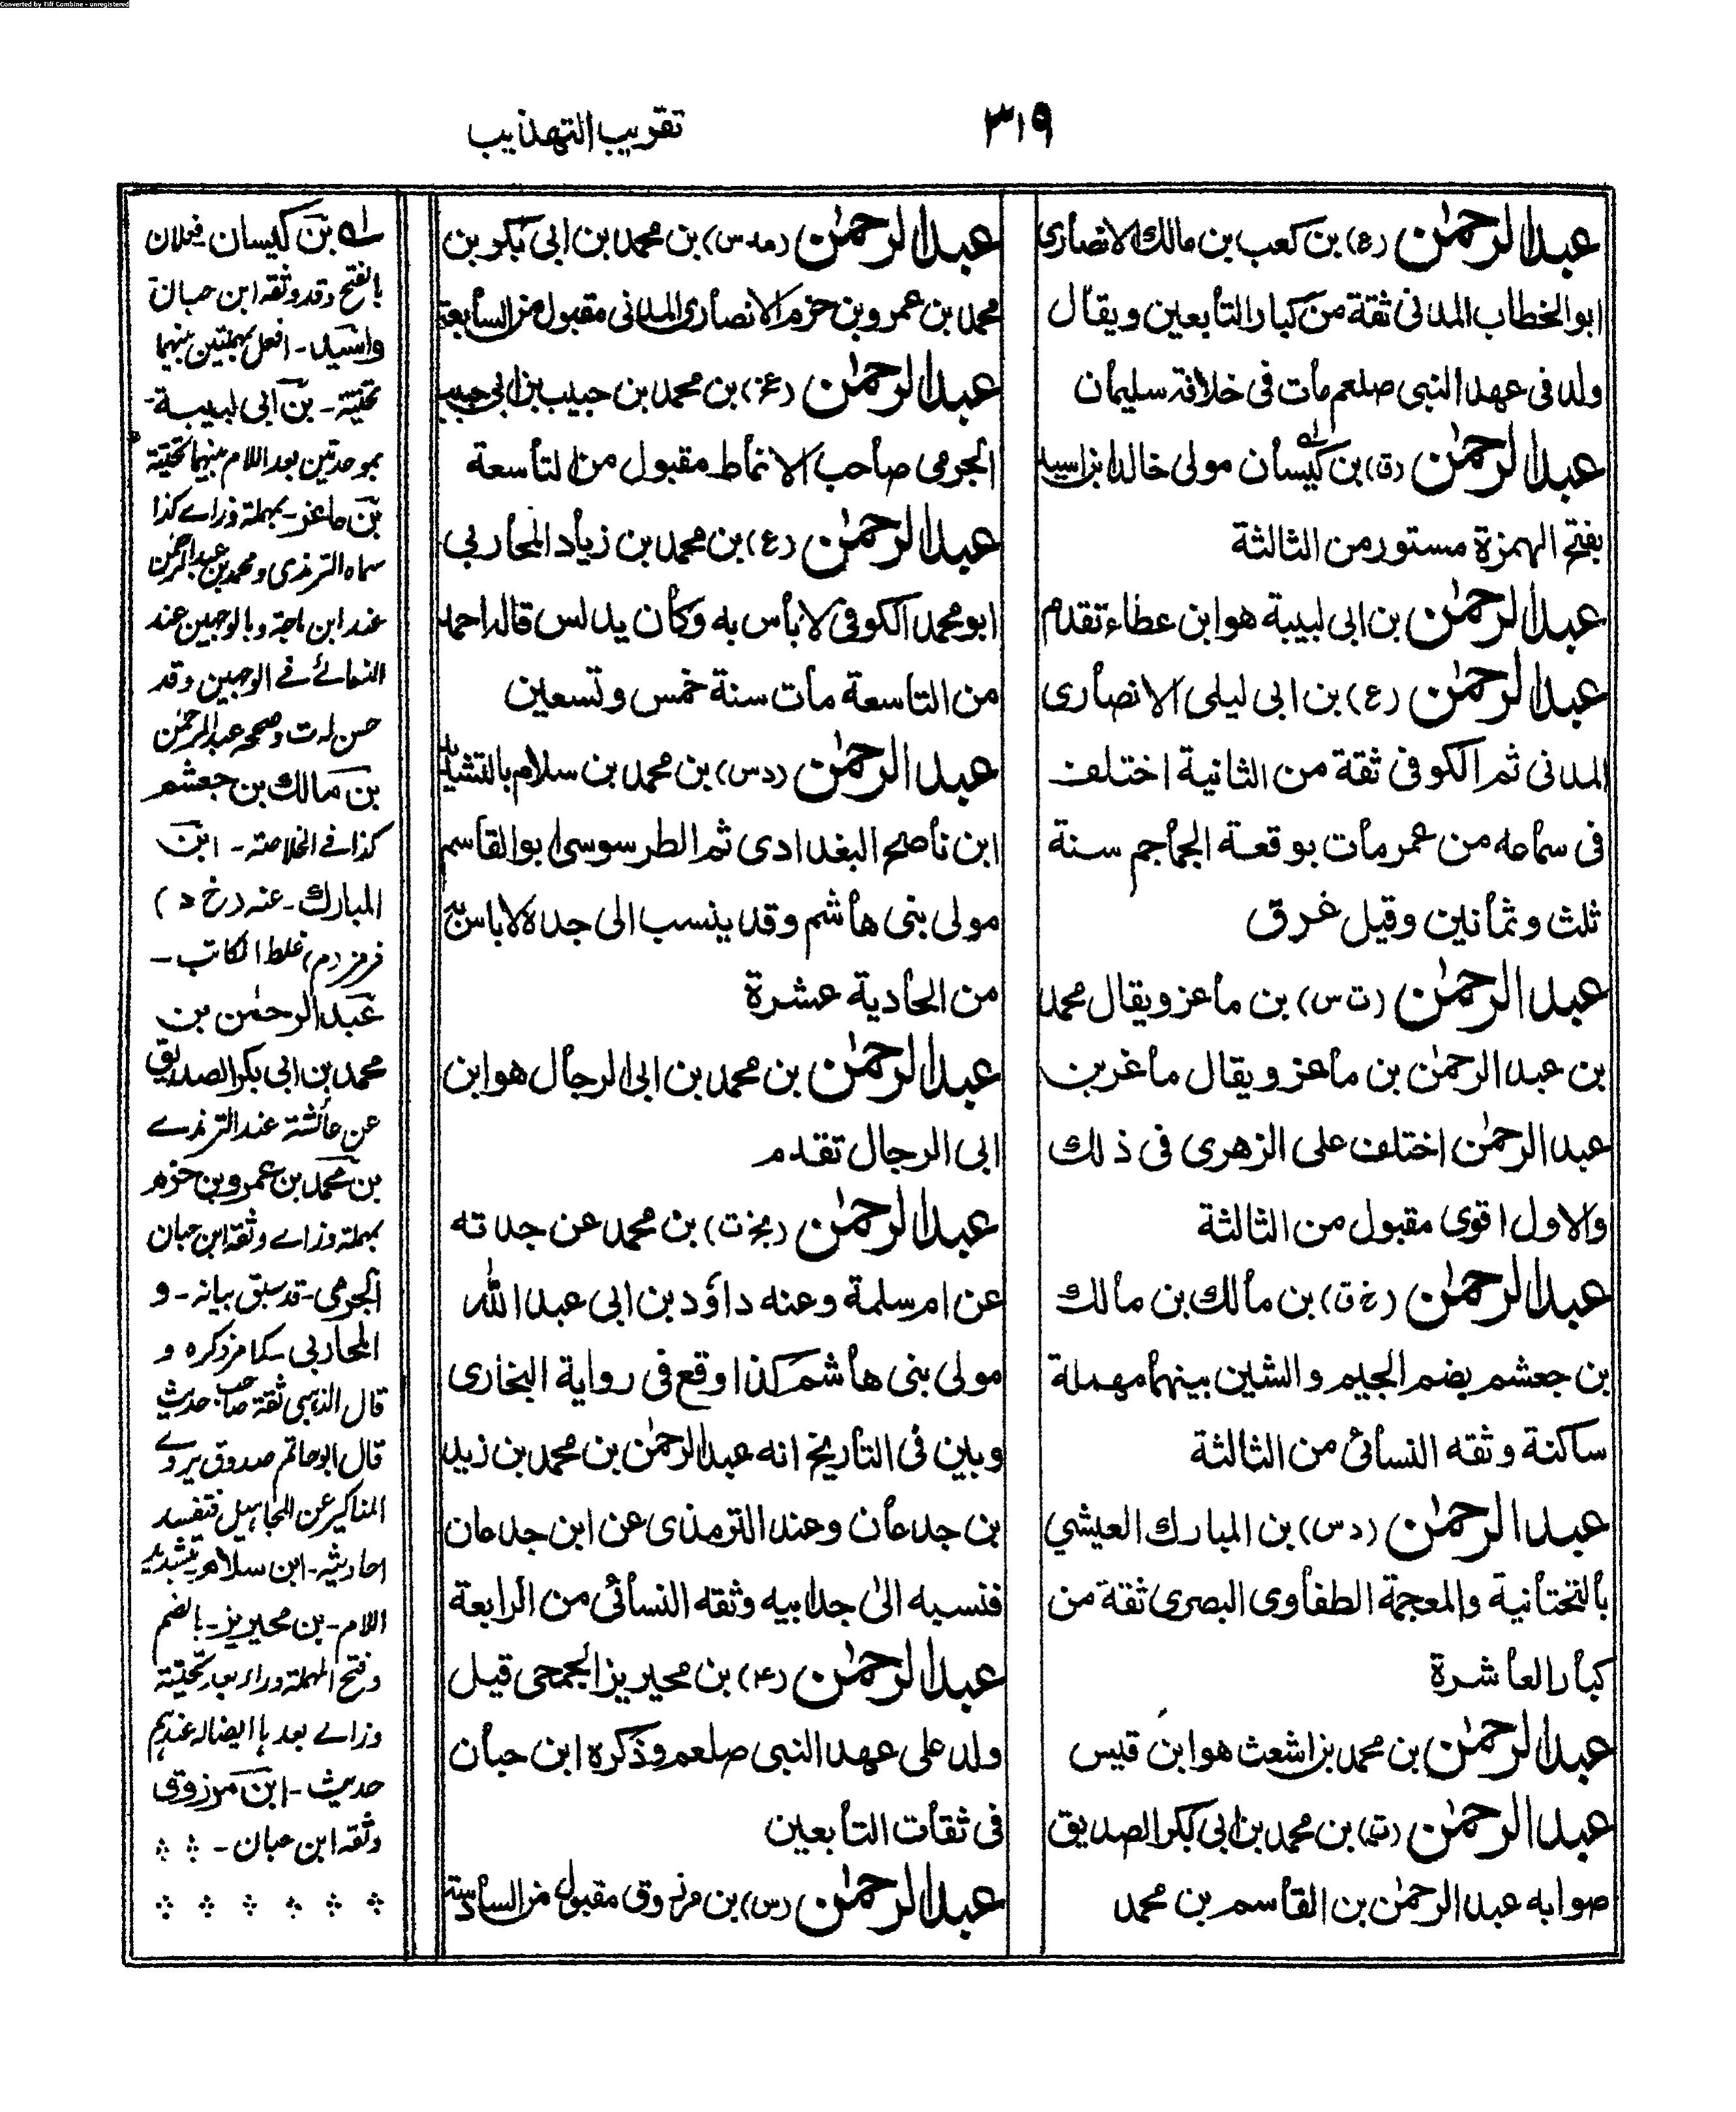 Converted by Tiff Combine - unregistered
٣١٩
تقريب التهذيب
عبد الرحمٰن (ع) بن كعب بن مالك الانصارى
ابو الخطاب المدنى ثقة من كبار التابعين ويقال
ولد فى عهد النبى صلعم مات فى خلافة سليمان
عبد الرحمٰن (ق) بن كيسان مولى خالد ابن اسيد
بفتح الهمزة مستور من الثالثة
عبد الرحمٰن بن ابى لبيبة هو ابن عطاء تقدم
عبد الرحمٰن (ع) بن ابى ليلى الانصارى
المدنى ثم الكوفى ثقة من الثانية اختلف
فى سماعه من عمر مات بوقعة الجماجم سنة
ثلث وثمانين وقيل غرق
عبد الرحمٰن (ت س) بن ماعز ويقال محمد
بن عبد الرحمٰن بن ماعز ويقال ماغر بن
عبد الرحمٰن اختلف على الزهرى فى ذلك
والاول اقوى مقبول من الثالثة
عبد الرحمٰن (خ ق) بن مالك بن مالك
بن جعشم بضم الجيم والشين بينهما مهملة
ساكنة وثقه النسائى من الثالثة
عبد الرحمٰن (د س) بن المبارك العيشي
بالتختانية والمعجمة الطفاوى البصرى ثقة من
كبار العاشرة
عبد الرحمٰن بن محمد بن اشعث هو ابن قيس
عبد الرحمٰن بن محمد بن ابى بكر الصديق
صوابه عبد الرحمٰن بن القاسم بن محمد
عبد الرحمٰن (مد س) بن محمد بن ابى بكر بن
محمد بن عمرو بن حزم الانصارى المدنى مقبول من السابعة
عبد الرحمٰن (عخ) بن محمد بن حبيب بن ابى حبيب
الجرمى صاحب الانماط مقبول من التاسعة
عبد الرحمٰن (ع) بن محمد بن زياد المحاربى
ابو محمد الكوفى لا بأس به وكان يدلس قاله احمد
من التاسعة مات سنة خمس وتسعين
عبد الرحمٰن (د س) بن محمد بن سلام بالتشديد
ابن ناصح البغدادى ثم الطرسوسى ابو القاسم
مولى بنى هاشم وقد ينسب الى جده لا باس به
من الحادية عشرة
عبد الرحمٰن بن محمد بن ابى الرجال هو ابن
ابى الرجال تقدم
عبد الرحمٰن (بخ ت) بن محمد عن جدته
عن ام سلمة وعنه داؤد بن ابى عبد الله
مولى بنى هاشم كذا وقع فى رواية البخارى
وبين فى التاريخ انه عبد الرحمٰن بن محمد بن زيد
بن جدعان وعند الترمذى عن ابن جدعان
فنسبه الىٰ جد ابيه وثقه النسائى من الرابعة
عبد الرحمٰن (ع) بن محيريز الجمحى قيل
ولد على عهد النبى صلعم وذكره ابن حبان
فى ثقات التابعين
عبد الرحمٰن (س) بن مرزوق مقبول من السادسة
له بن كيسان - فعلان
بالفتح وقد وثقه ابن حبان
واسيد - افعل بمهملتين بينهما
تحتية - بن ابى لبيبة -
بموحدتين بعد اللام بينهما تحتية
بن ماعز - بمهملة وزاے كذا
سماه الترمذى ومحمد بن عبد الرحمٰن
عند ابن ماجة وبالوجهين عند
النسائے فے الوجهين وقد
حسن له ت وصححه عبد الرحمٰن
بن مالك بن جعشم
كذا فے الخلاصة - ابن
المبارك - عنه (خ د)
فرمز (م) غلط الكاتب -
عبد الرحمٰن بن
محمد بن ابى بكر الصديق
عن عائشة عند الترمذے
بن محمد بن عمرو بن حزم
بمهملة وزاے وثقه ابن حبان
الجرمى - قد سبق بيانه - و
المحاربى - كما مر ذكره و
قال الذهبى ثقة صاحب حديث
قال ابو حاتم صدوق يروے
المناكير عن المجاهيل فتفسد
احاديثه - ابن سلام بتشديد
اللام - بن محيريز - بالضم
وفتح المهملة وراء بعد تحتية
وزاے بعد ها ايضا له عندهم
حديث - ابن مرزوق
وثقه ابن حبان -